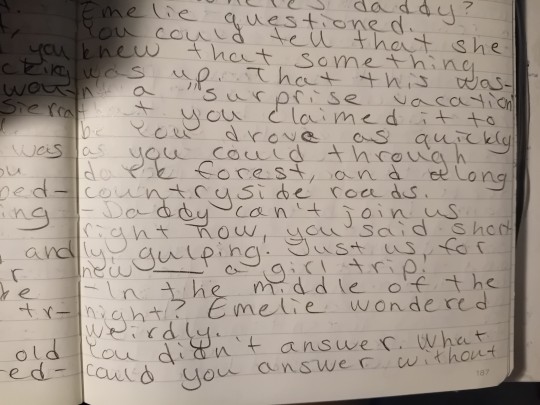 daddy?
Emelie questioned.
You could tell that she
knew that something
was up. That this was-
n a "surprise vacation"
t you claimed it to
be. You drove as quickly
as you could through
dark forest, and along
countryside roads.
- Daddy can't join us
right now, you said short
ly, gulping. Just us, for
now — a girl trip.
- In the middle of the
night? Emelie wondered
weirdly.
You didn't answer. What
could you answer without
you
was
ou
ped-
ing
and
r
tr-
old
ed-
107